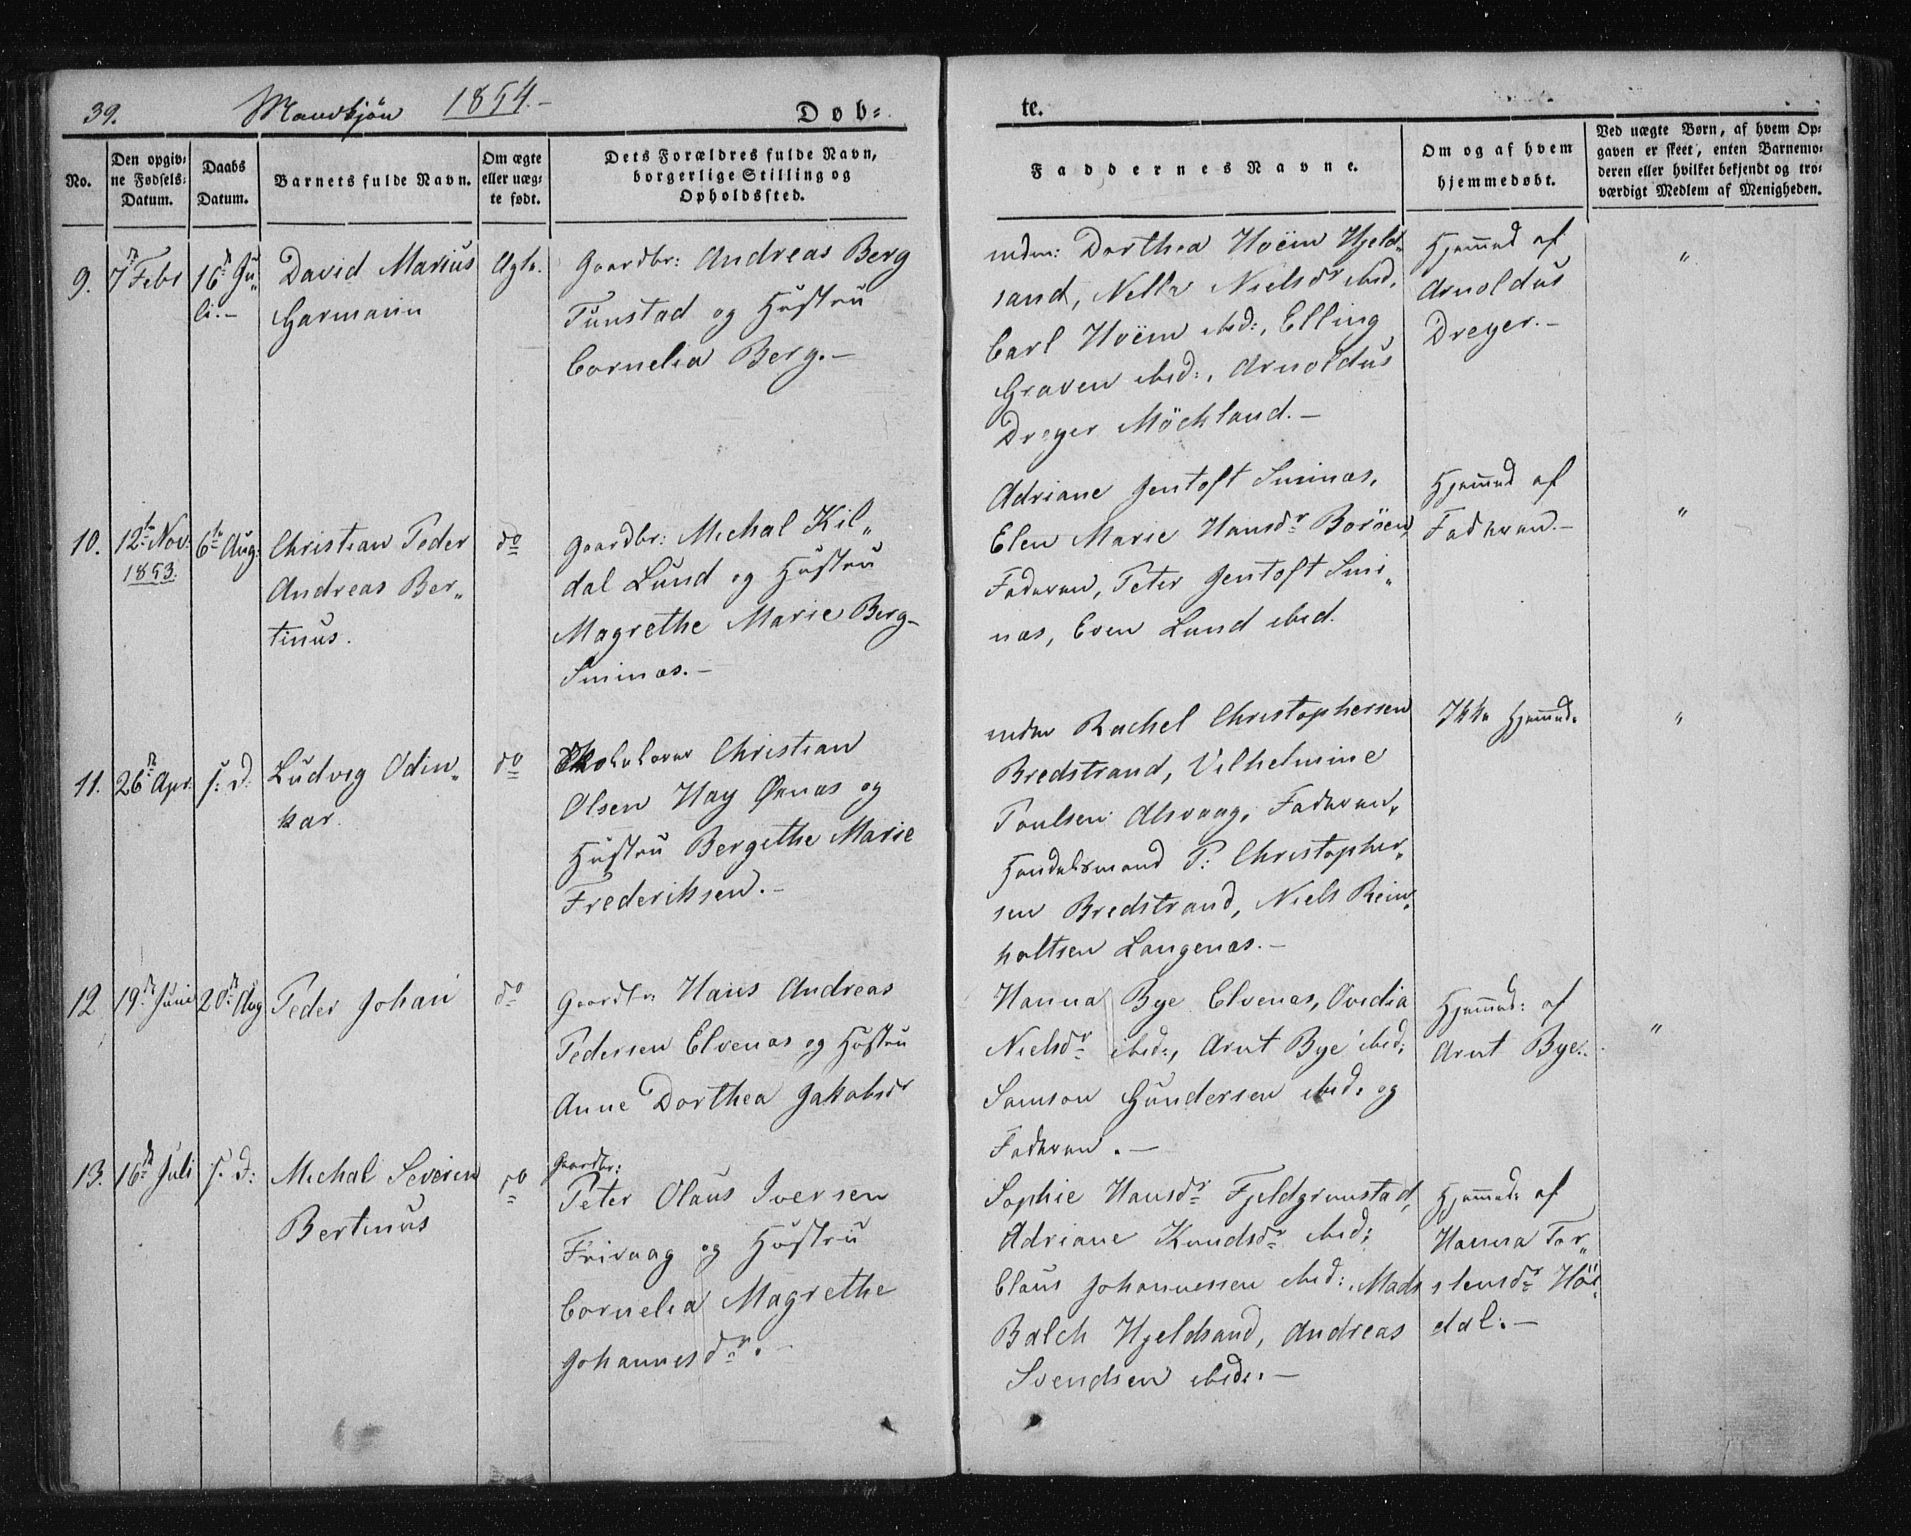 39. Mandkjøn 1854.- Døb=
te.
No.
Den opgiv=
ne Fødsels=
Datum.
Daabs
Datum.
Barnets fulde Navn.
Om ægte
eller uæg=
te født.
Dets Forældres fulde Navn,
borgerlige Stilling og
Opholdsfted.
Faddernes Navne.
Om og af hvem
hjemmedøbt.
Ved uægte Børn, af hvem Op=
gaven er skeet, enten Barnemo=
deren eller hvilket bekjendt og tro=
værdigt Medlem af Menigheden.
9.
7de Febr
16de Ju„
li.-
David Marius
Garmann
Ægte.
Gaardbr: Andreas Berg
Tunstad og Hustru
Cornelia Berg.-
Dorthea Hoëm Hjeld„
sand, Nella Nielsdr ibid.
Carl Hoëm ibid:, Elling
Graven ibid:, Arnoldus
Dreyer Möckland.-
Hjemmed af
Arnoldus
Dreyer.-
„
10.
12te Nov.
1853.
6te Aug:
Christian Peder
Andreas Ber„
tinus.
do
Gaardbr: Michal Kil„
dal Lund og Hustru
Magrethe Marie Berg-
Sminæs.-
Adriane Jentoft Sminæs,
Elen Marie Hansdr Borøen,
Faderen, Peter Jentoft Smi„
næs, Even Lund ibid.
Hjemmed af
Faderen.-
„
11.
26de Apr.
s: D.
Ludvig Odin„
kar.
do
Skolelærer Christian
Olsen Hay Ørnæs og
Hustru Bergithe Marie
Frederiksen.-
Rachel Christophersen
Bredstrand, Vilhelmine
Poulsen Alsvaag, Faderen,
Handelsmand P: Christopher„
sen Bredstrand, Niels Rein„
holtsen Langenæs.-
Ikke Hjemmed:
„
12
19de Juni
20de Aug
Peder Johan
do
Gaardbr: Hans Andreas
Pedersen Elvenæs og Hustru
Anne Dorthea Jakobsdr
Hanna Bye Elvenæs, Ovidia
Nielsdr ibid:, Arnt Bye ibid:
Samson Gundersen ibid: og
Faderen.-
Hjemmed: af
Arnt Bye.
„
13.
16de Juli
s. D:
Michal Severin
Bertinus
do
Gaardbr:
Peter Olaus Iversen
Frivaag og Hustru
Cornelia Magrethe
Johannesdr.-
Sophie Hansdr Fjeldgrunstad,
Adriane Knudsdr ibid:
Claus Johannessen ibid:, Mads
Balch Hjeldsand, Andreas
Svendsen ibid:.-
Hjemmed: af
Hanna Tor„
stensdr Höi„
dal.-